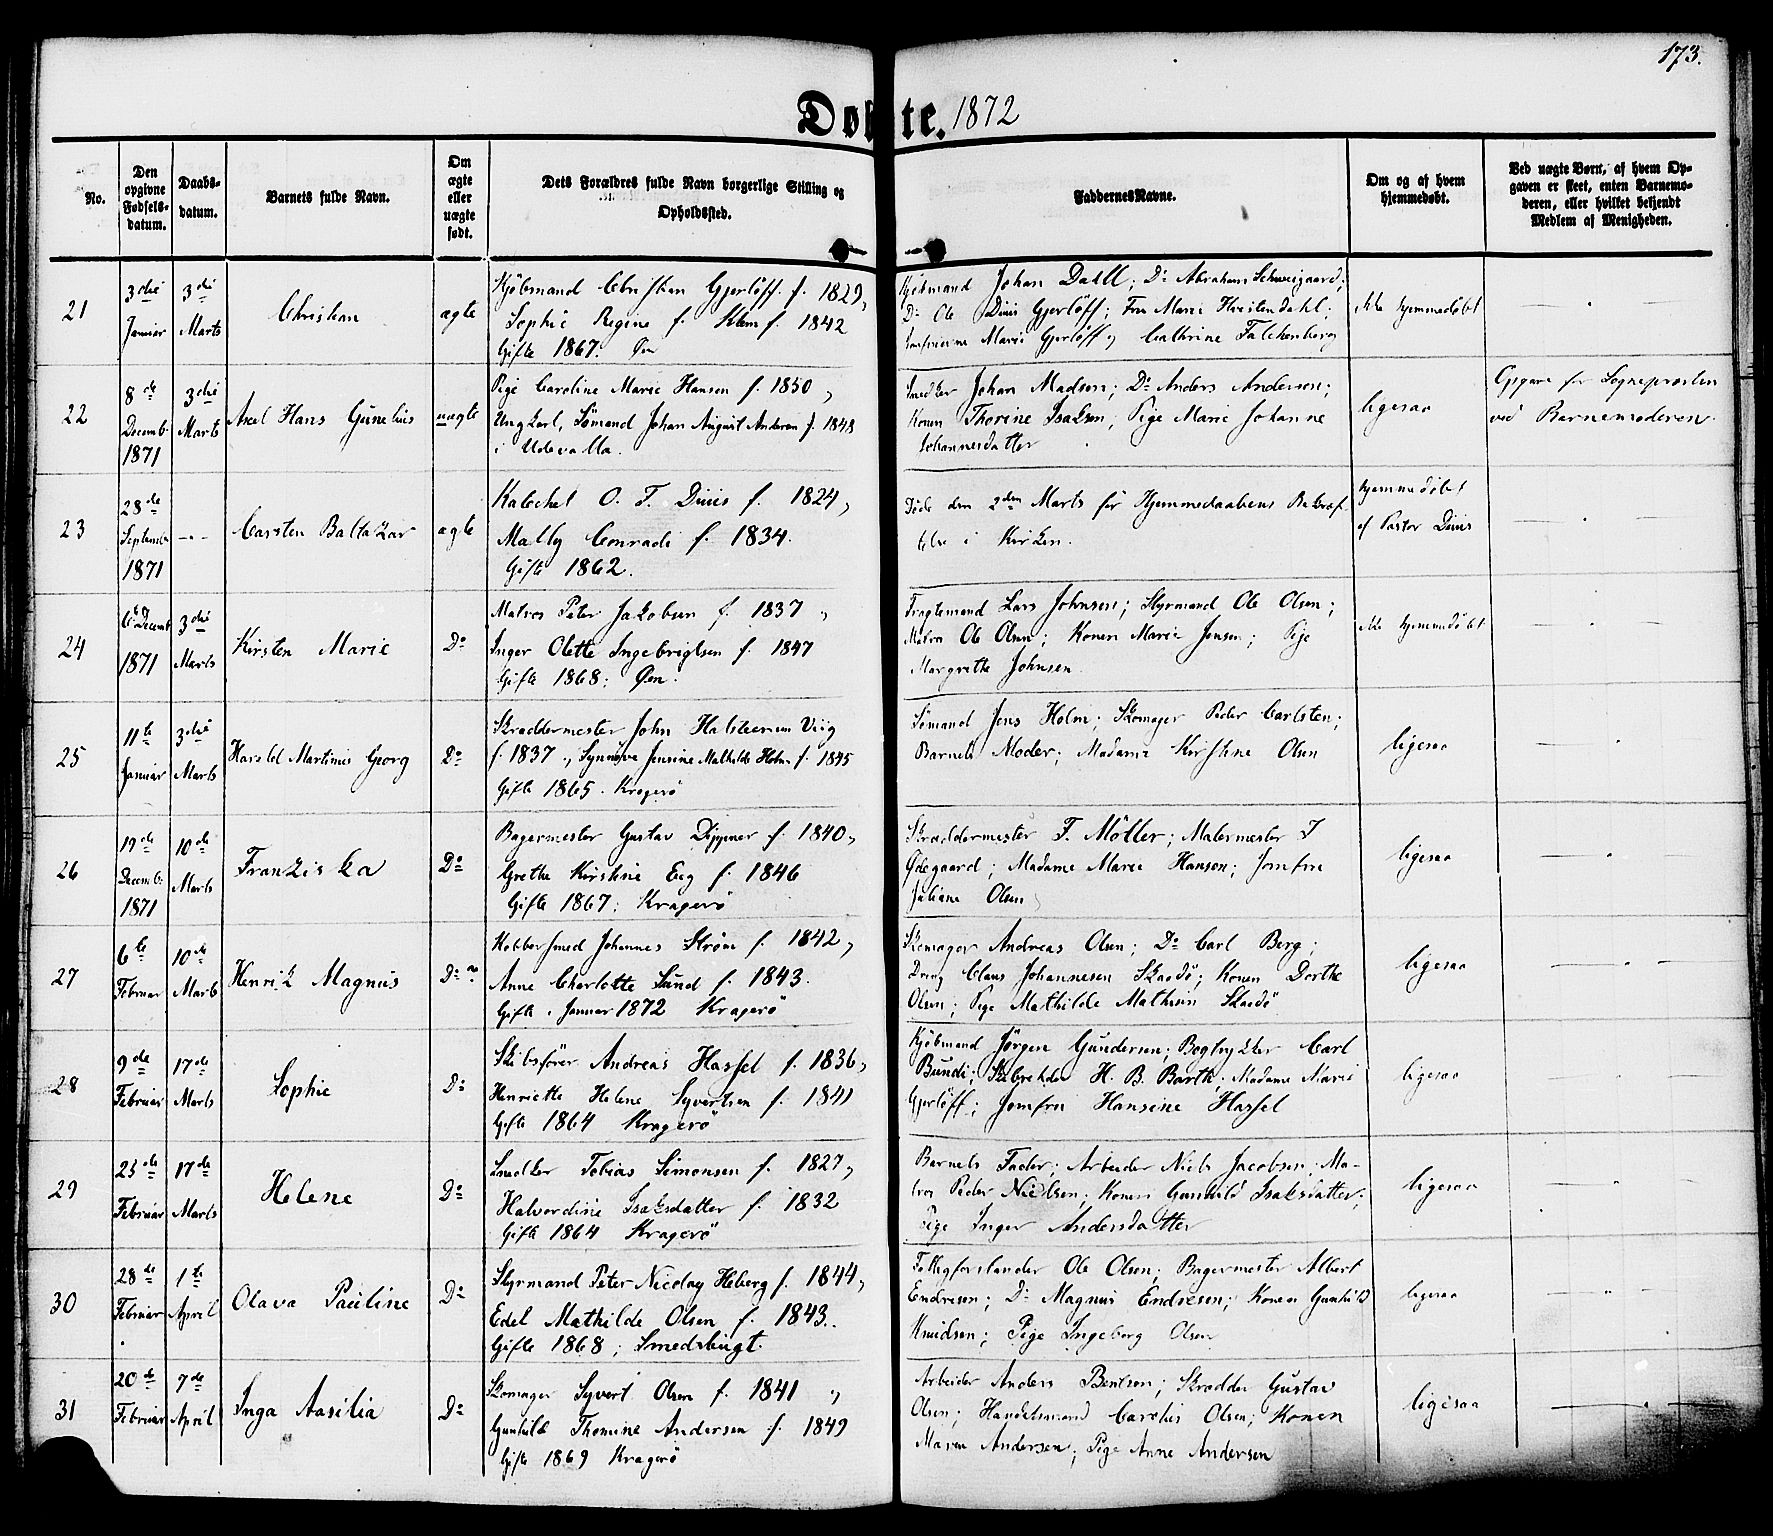 173.
Døbte. 1872
No.
Den opgivne Fødselsdatum.
Daabsdatum.
Barnets fulde Navn.
Om ægte eller uægte født.
Dets Forældres fulde Navn borgerlige Stilling og Opholdssted.
Faddernes Navne.
Om og af hvem hjemmedøbt.
Ved uægte Børn, af hvem Opgaven er skeet, enten Barnemoderen, eller hvilket bekjendt Medlem af Menigheden.
21
3die Januar
3die Marts
Christian
ægte
Kjøbmand Christian Gjerløff f. 1829,
Sophie Regine f. Klem f. 1842
Gifte 1867. Øen
Kjøbmand Johan Dahll; Do Abraham Schweigaard;
Do Ole Diuis Gjerløff; Fru Marie Hvistendahl;
Jomfruerne Marie Gjerløff og Cathrine Falckenberg
ikke hjemmedøbt
22
8de Decemb. 1871
3die Marts
Axel Hans Gunelius
uægte
Pige Caroline Marie Hansen f. 1850,
Ungkarl, Sömand Johan August Andersen f. 1848
i Udevalla.
Snedker Johan Madsen; Do Anders Andersen;
Konen Thorine Isaksen, Pige Marie Johanne
Johannesdatter
ligesaa
Opgave for Sognepræsten
ved Barnemoderen.
23
28de Septembr 1871
Carsten Baltazar
ægte
Katechet O. T. Diuis f. 1824,
Mally Conradi f. 1834.
Gifte 1862.
Døde den 2den Marts før Hjemmedaabens Bekræf-
telse i Kirken.
hjemmedøbt
af Pastor Diuis
24
6te Decemb 1871
3die Marts
Kirsten Marie
Do
Matros Peter Jakobsen f. 1837,
Inger Olette Ingebrigtsen f. 1847
Gifte 1868; Øen.
Fragtemand Lars Johnsen; Styrmand Ole Olsen;
Matros Ole Olsen; Konen Marie Jensen; Pige
Margrethe Johnsen
ikke hjemmedøbt
25
11te Januar
3die Marts
Harald Martinius Georg
Do
Skræddermester John Halsteensen Viig
f. 1837., Synnöve Jensine Mathilde Holm f. 1845
Gifte 1865. Kragerö
Sømand Jens Holm; Skomager Peder Carlsten;
Barnets Moder; Madame Kirstine Olsen
ligesaa
26
19de Decemb: 1871
10de Marts
Franziska
Do
Bagermester Gustav Dippner f. 1840,
Grethe Kirstine Eeg f. 1846
Gifte 1867: Kragerö
Skræddermester T. Möller; Malermester I
Ødegaard; Madame Marie Hansen; Jomfru
Juliane Olsen
ligesaa
27
6te Februar
10de Marts
Henrik Magnus
Do
Kobbersmed Johannes Strøm f. 1842,
Anne Charlotte Sund f. 1843.
Gifte i Januar 1872 Kragerö
Skomager Andreas Olsen; Do Carl Berg;
Dreng Claus Johannesen Skaadö; Konen Dorthe
Olsen; Pige Mathilde Mathisen Skaadö
ligesaa
28
9de Februar
17de Marts
Sophie
Do
Skibsfører Andreas Hassel f. 1836,
Henriette Helene Syvertsen f. 1841
Gifte 1864 Kragerö
Kjöbmand Jörgen Gundersen; Bogtrykker Carl
Bundi; Skibsreder H. B. Barth; Madame Marie
Gjerløff; Jomfru Hansine Hassel
ligesaa
29
25de Februar
17de Marts
Helene
Do
Snedker Tobias Simonsen f. 1827,
Halvordine Isaksdatter f. 1832
Gifte 1864 Kragerö
Barnets Fader; Arbeider Niels Jacobsen; Ma-
tros Peder Nielsen; Konen Gunhild Isaksdatter;
Pige Inger Andersdatter
ligesaa
30
28de Februar
1te April
Olava Pauline
Do
Styrmand Peter Nicolay Heberg f. 1844,
Edel Mathilde Olsen f. 1843.
Gifte 1868; Smedsbugt.
Fattigforstander Ole Olsen; Bagermester Albert
Endresen; Do Magnus Endresen; Konen Gunhild
Knudsen; Pige Ingeborg Olsen
ligesaa
31
20de Februar
7de April
Inga Aasilia
Do
Skomager Syvert Olsen f. 1841,
Gunhild Thomine Andersen f. 1849
Gifte 1869 Kragerö
Arbeider Anders Bentsen; Skrædder Gustav
Olsen; Handelsmand Carelius Olsen; Konen
Maren Andersen; Pige Anne Andersen
ligesaa